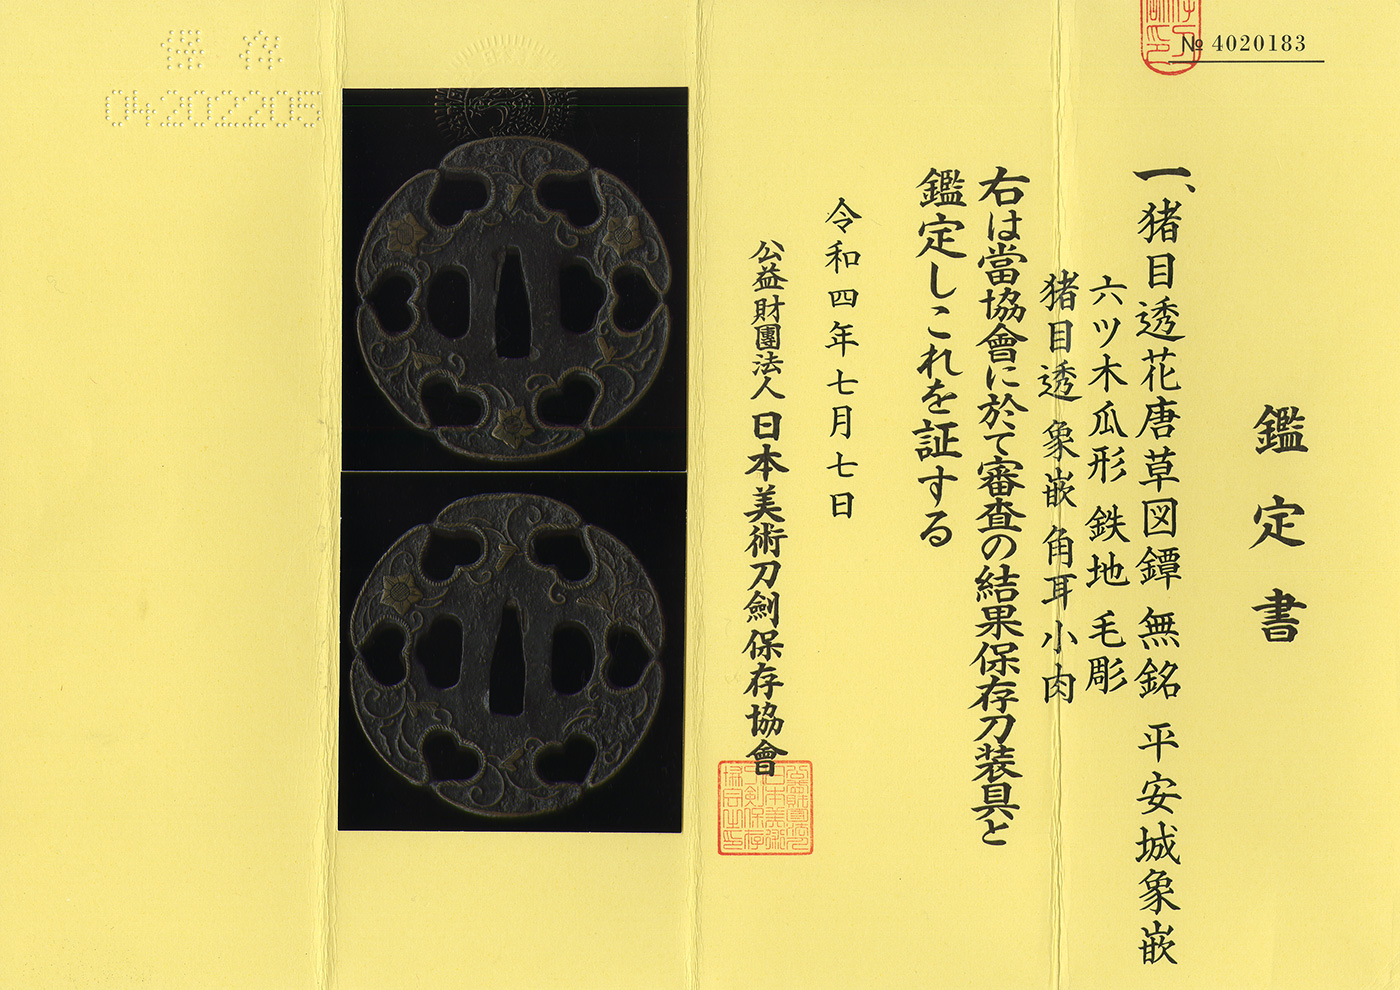 № 4020183
鑑定書
一、猪目透花唐草図鐔 無銘 平安城象嵌
六ツ木瓜形 鉄地 毛彫
猪目透 象嵌 角耳小肉
右は當協會に於て審査の結果保存刀装具と
鑑定しこれを証する
令和四年七月七日
公益財團法人 日本美術刀劍保存協會
保存
04202205